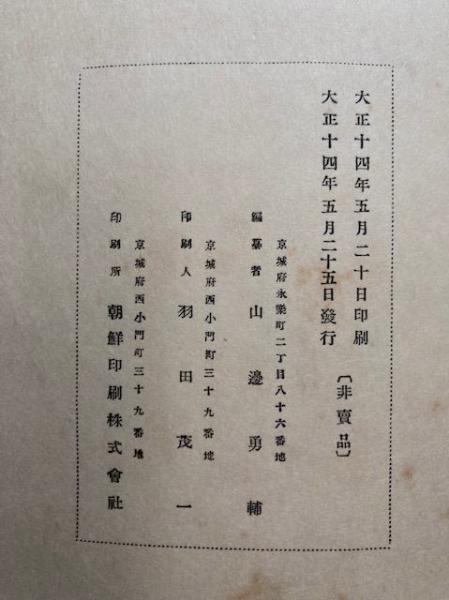 大正十四年五月二十日印刷
大正十四年五月二十五日發行
〔非賣品〕
京城府永樂町二丁目八十六番地
編纂者 山邊勇輔
京城府西小門町三十九番地
印刷人 羽田茂一
京城府西小門町三十九番地
印刷所 朝鮮印刷株式會社